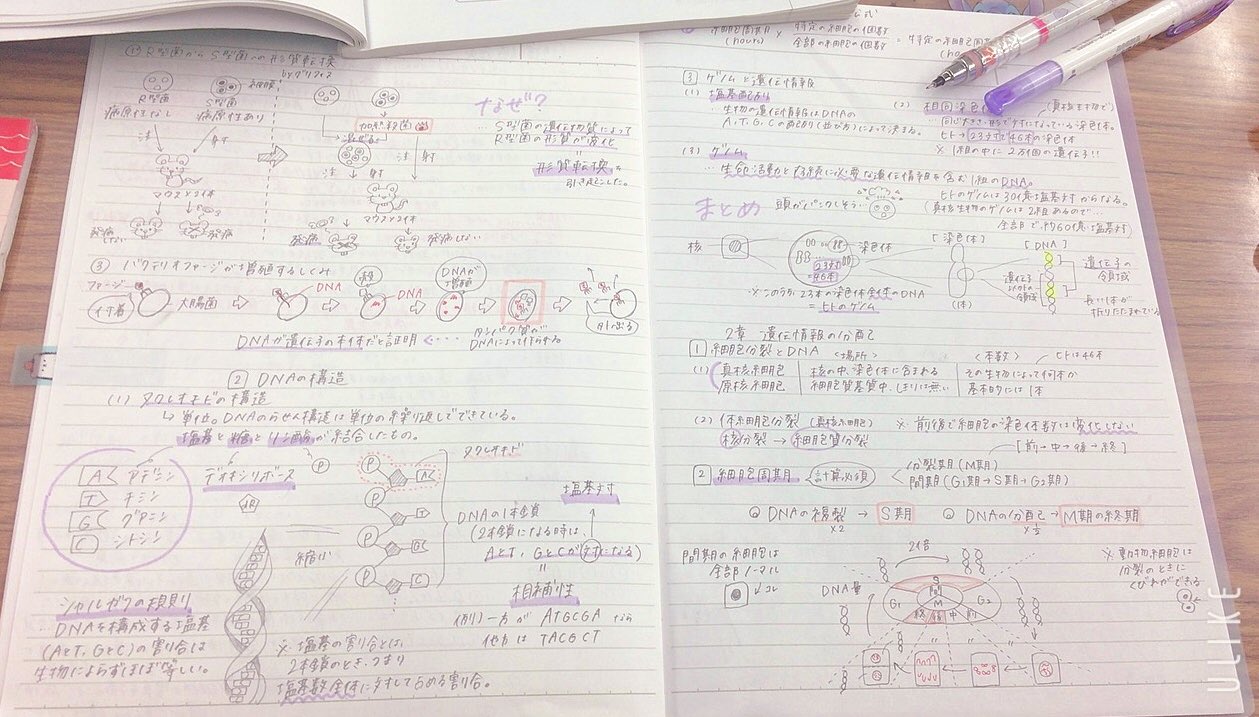 R型菌から S型菌への形質転換
byグリフィス
R型菌
病原性なし
S型菌
病原性あり
注 射
マウス
発病しない
発病
加熱殺菌
混ぜる
注 射
注 射
マウス
発病
発病しない
なぜ?
…S型菌の遺伝物質によって
R型菌の形質が変化
=
形質転換を
引き起こした。
③ バクテリオファージが増殖するしくみ
ファージ
付着
大腸菌
DNA
殻
DNA
DNAが
増殖
タンパク質が
DNAによって作られる
DNAが遺伝子の本体だと証明
② DNAの構造
(1) ヌクレオチドの構造
↳ 単位。DNAのらせん構造は単位の繰り返しでできている。
塩基と糖とリン酸が結合したもの。
A アデニン
T チミン
G グアニン
C シトシン
デオキシリボース
P
糖
P
P
P
P
A
T
G
C
ヌクレオチド
DNAの1本鎖
(2本鎖になる時は、
AとT、GとCが対になる)
塩基対
=
相補性
(例) 一方が ATGCGA なら
他方は TACGCT
シャルガフの規則
…DNAを構成する塩基
(AとT、GとC)の割合は
生物によらずほぼ等しい。
※ 塩基の割合とは、
2本鎖のとき、つまり
塩基数全体に対して占める割合。
公式
(hours) × 特定の細胞の個数
全部の細胞の個数
= 特定の細胞周期
③ ゲノムと遺伝情報
(1) 塩基配列
…生物の遺伝情報はDNAの
A、T、G、Cの配列(並び方)によって決まる。
(2) 相同染色体 (真核生物で)
同じ大きさ・形で対になっている染色体。
ヒト→23対で46本の染色体
※ 1組の中に2万個の遺伝子!!
(3) ゲノム
…生命活動と存続に必要な遺伝情報を含む1組のDNA。
ヒトのゲノムは30億塩基対からなる。
(真核生物のゲノムは2組あるので…
全部で約60億塩基対)
まとめ 頭がパンクしそう…
核
染色体
23対
=46本
[染色体]
(1体)
[DNA]
遺伝子の
領域
遺伝子
以外の
領域
長い1本が
折りたたまれている
※このうち23本の染色体全体のDNA
=ヒトのゲノム
2章 遺伝情報の分配
1 細胞分裂とDNA
〈場所〉
〈本数〉
ヒトは46本
(1) 真核細胞 核の中、染色体に含まれる その生物によって何本か
原核細胞 細胞質基質中、しきりは無い 基本的には1本
(2) 体細胞分裂 (真核細胞) ※ 前後で細胞の染色体数は変化しない
核分裂 → 細胞質分裂
[前→中→後→終]
2 細胞周期 計算必須
分裂期(M期)
間期(G₁期→S期→G₂期)
DNAの複製 → S期
×2
DNAの分配 → M期の終期
×½
間期の細胞は
全部ノーマル
↓コレ
DNA量
2倍
S
G₁
M
G₂
終 後 中 前
※ 動物細胞は
分裂のときに
くびれができる
ULIKE